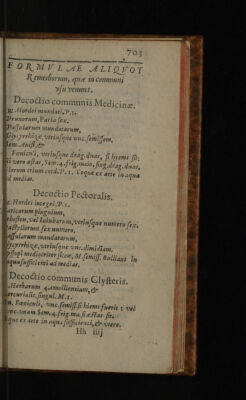 703
FORMVLAE ALIQVOT
Remediorum, quæ in communi
vsu venunt.
Decoctio communis Medicinæ.
Hordei mundati, P.1.
Prunorum, Paria sex.
Passularum mundatarum,
Glycyrrhizæ, vtriusque vnc. semissem.
Sem. Anisi, &
Fœniculi, vtriusque drag. duas, si hyems sit:
si vero æstas, Sem. 4. frig. maio. sing. drag. duas,
florum trium cord. P.1. Coquæ ex arte in aqua
ad medias.
Decoctio Pectoralis.
Hordei integri, P.1.
Caricarum pinguium,
Iuiubarum, vel Sebesten, vtriusque numero sex.
Dactyllorum sex numero,
Passularum mundatarum,
Glycyrrhizæ, vtriusque vnc. dimidiam.
Hyssopi mediocriter siccæ, M. semiss. Bulliant in
aqua sufficienti ad medias.
Decoctio communis Clysteris.
Herbarum 4. emollientium, &
Mercurialis, singul. M.1.
Fœniculi, vnc. semiss. si hyems fuerit: vel
vnc. vnam Sem. 4. frig. ma. si æstas sit.
Coque ex arte in aqua sufficienti, & vtere.
Hh iiij